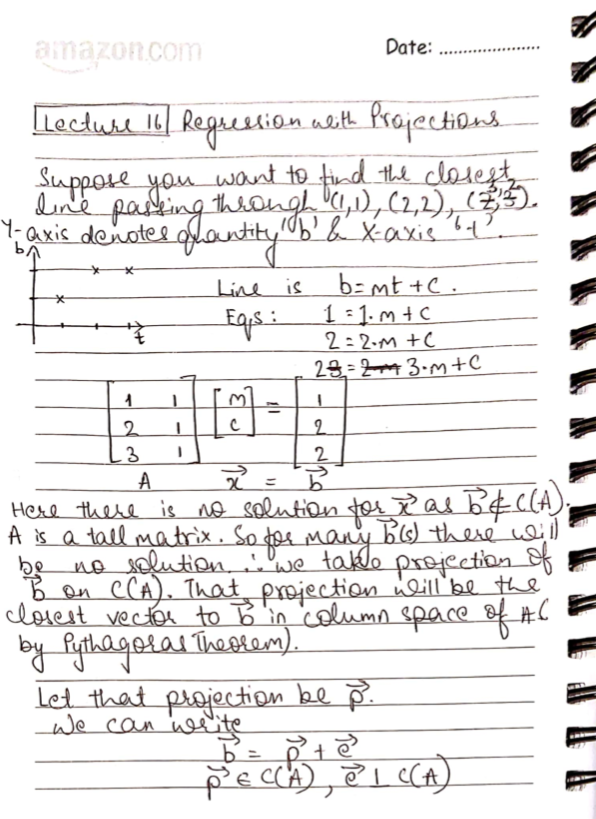 amazon.com
Date: ......................
Lecture 16 Regression with Projections
Suppose you want to find the closest
line passing through (1,1), (2,2), (3,2).
Y-axis denotes quantity 'b' & X-axis 't'.
b
t
Line is b=mt+C.
Eqs: 1=1·m+C
2=2·m+C
2=3·m+C
[1 1] [m] = [1]
[2 1] [c] [2]
[3 1] [2]
A x⃗ = b⃗
Here there is no solution for x⃗ as b⃗ ∉ C(A).
A is a tall matrix. So for many b⃗(s) there will
be no solution. ∴ we take projection of
b⃗ on C(A). That projection will be the
closest vector to b⃗ in column space of A(
by Pythagoras Theorem).
Let that projection be p⃗.
We can write
b⃗ = p⃗ + e⃗
p⃗ ∈ C(A), e⃗ ⊥ C(A)